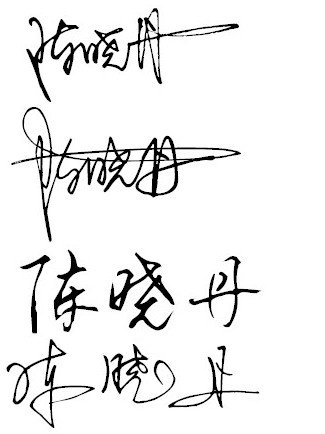 陈晓丹
陈晓丹
陈晓丹
陈晓丹